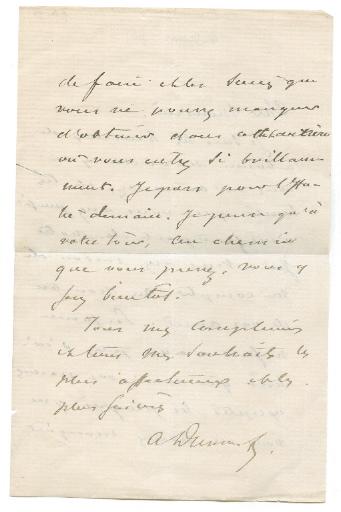 de faire et les succès que
vous ne pouvez manquer
d'obtenir dans cette carrière
où vous entrez si brillam-
ment. Je pars pour l'Ita-
lie demain. Je pense qu'à
votre tour, au chemin
que vous prenez, vous y
serez bientôt.
Tous mes compliments
et tous mes souhaits les
plus affectueux et les
plus
A Dumas f.